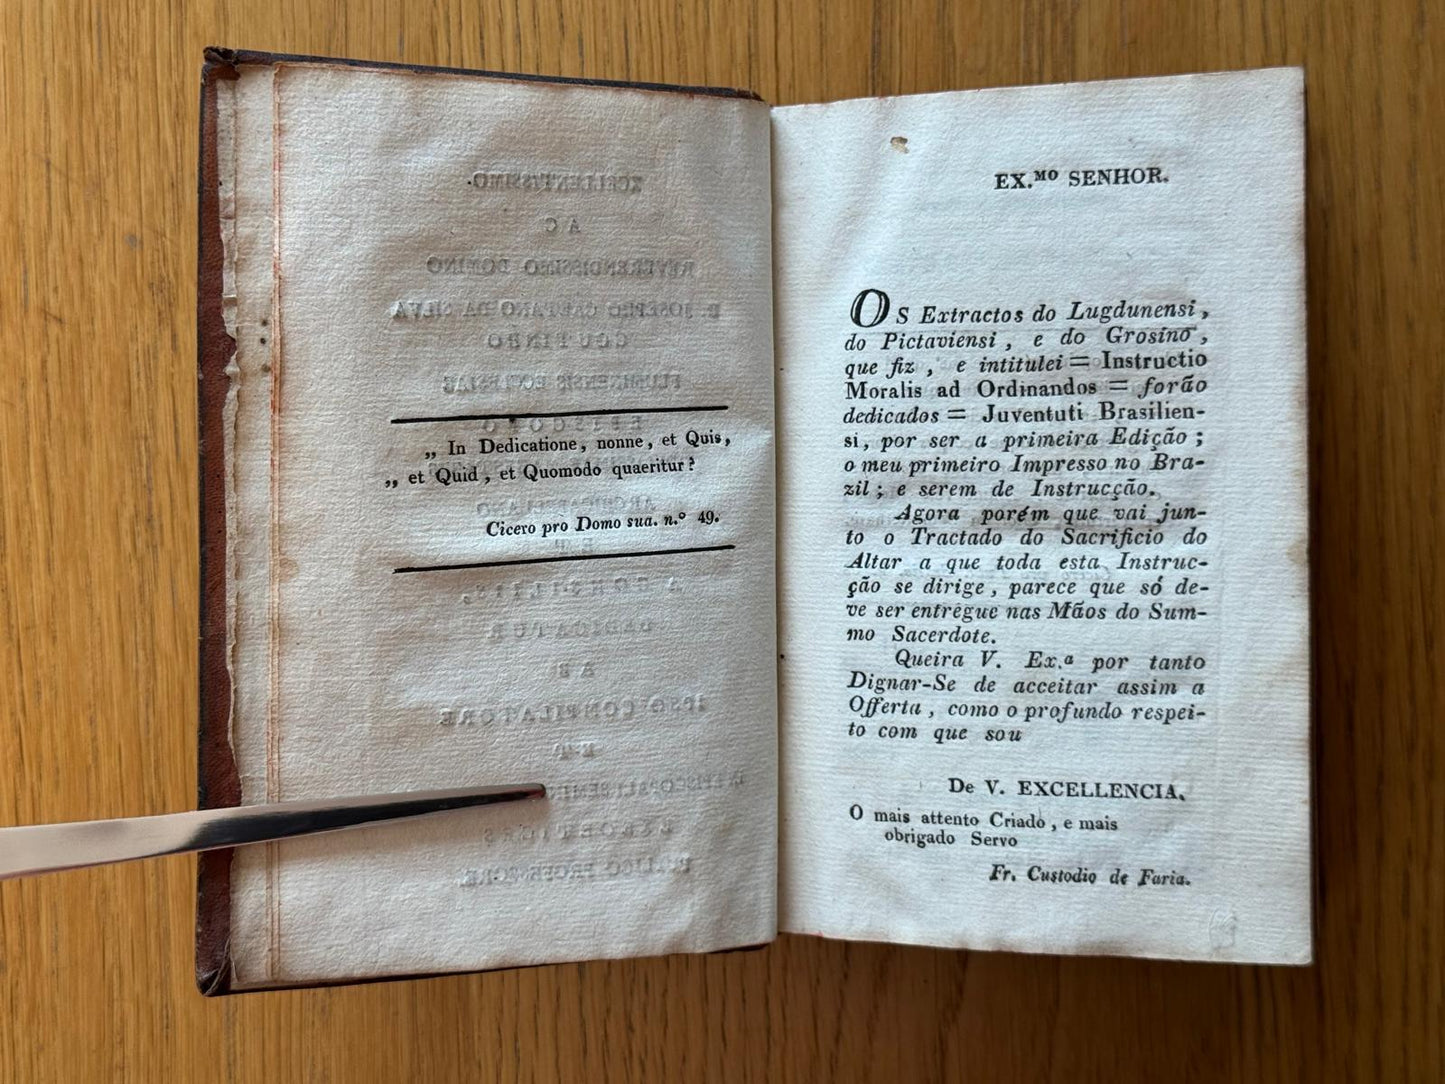 „ In Dedicatione, nonne, et Quis,
„ et Quid, et Quomodo quaeritur?
Cicero pro Domo sua. n.º 49.
EX.MO SENHOR.
OS Extractos do Lugdunensi,
do Pictaviensi, e do Grosino,
que fiz, e intitulei = Instructio
Moralis ad Ordinandos = forão
dedicados = Juventuti Brasilien-
si, por ser a primeira Edição;
o meu primeiro Impresso no Bra-
zil; e serem de Instrucção.
Agora porém que vai jun-
to o Tractado do Sacrificio do
Altar a que toda esta Instruc-
ção se dirige, parece que só de-
ve ser entregue nas Mãos do Sum-
mo Sacerdote.
Queira V. Ex.a por tanto
Dignar-Se de acceitar assim a
Offerta, como o profundo respei-
to com que sou
De V. EXCELLENCIA.
O mais attento Criado, e mais
obrigado Servo
Fr. Custodio de Faria.